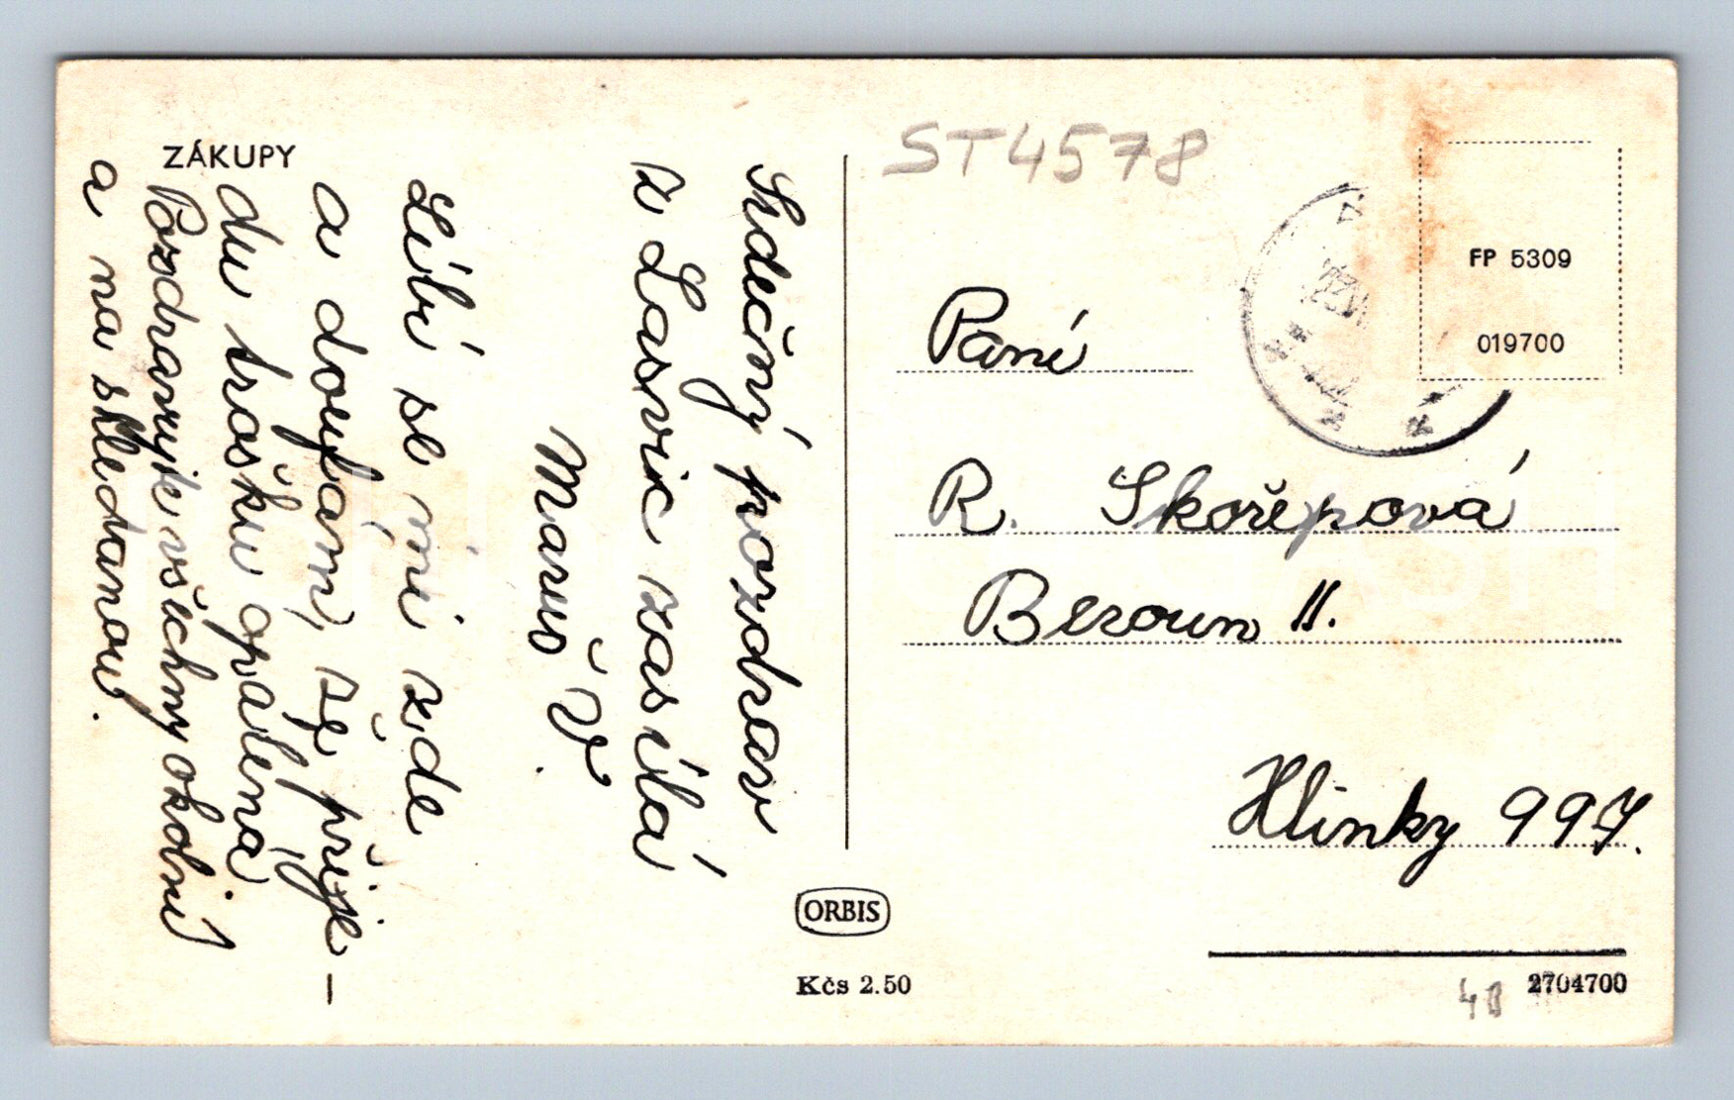 ZÁKUPY
Srdečný pozdrav
z Lasvic zasílá
Maruš V.
Líbí se mi zde
a doufám, že přije-
du trošku opálená
Pozdravujte všechny okolní
a na shledanou.
ST4578
FP 5309
019700
Paní
R. Skořepová
Beroun II.
Hlinky 997.
ORBIS
Kčs 2.50
48
2704700